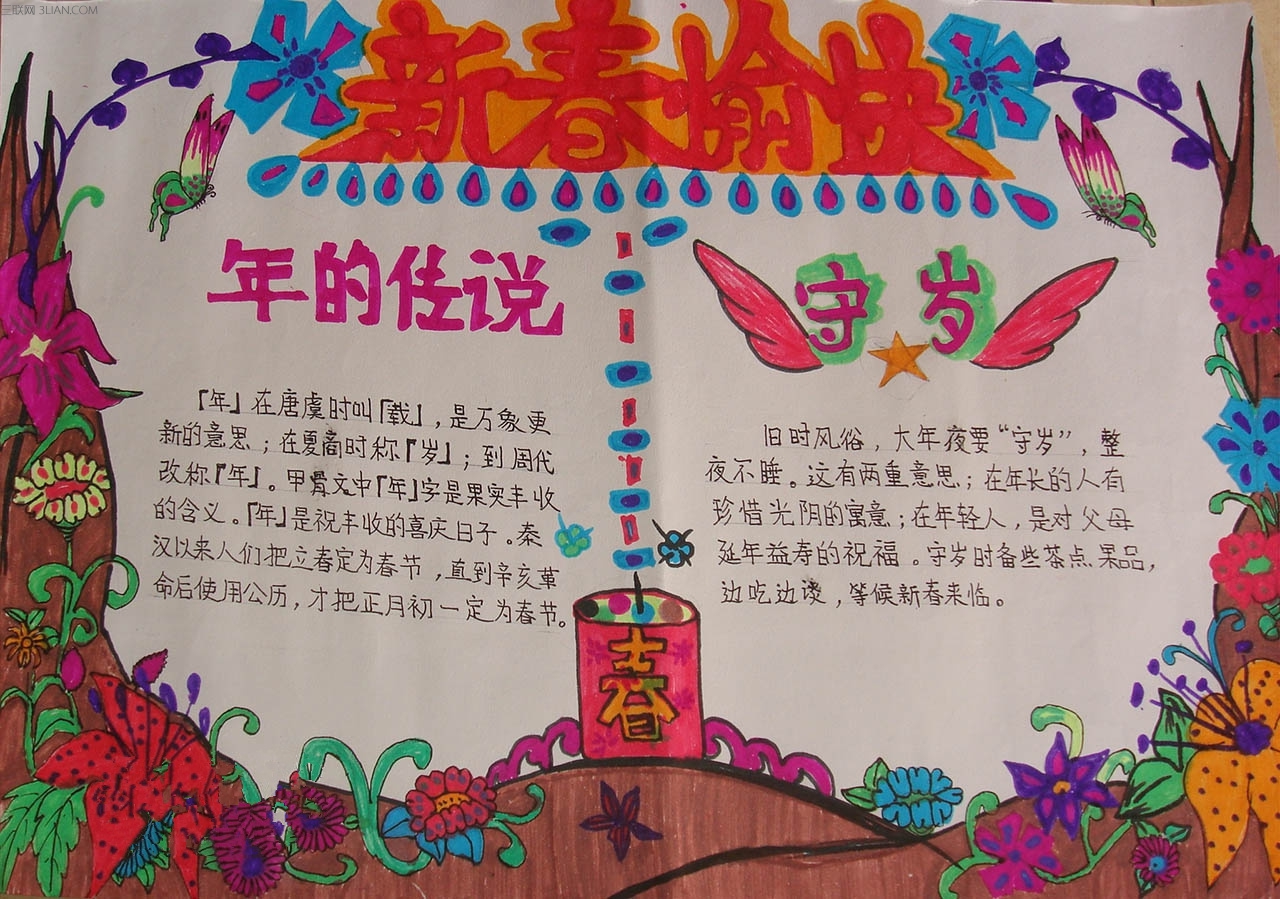 三联网 3LIAN.COM
新春愉快
年的传说
「年」在唐虞时叫「载」，是万象更
新的意思；在夏商时称「岁」；到周代
改称「年」。甲骨文中「年」字是果实丰收
的含义。「年」是祝丰收的喜庆日子。秦
汉以来人们把立春定为春节，直到辛亥革
命后使用公历，才把正月初一定为春节。
守岁
旧时风俗，大年夜要“守岁”，整
夜不睡。这有两重意思；在年长的人有
珍惜光阴的寓意；在年轻人，是对父母
延年益寿的祝福。守岁时备些茶点果品，
边吃边谈，等候新春来临。
春